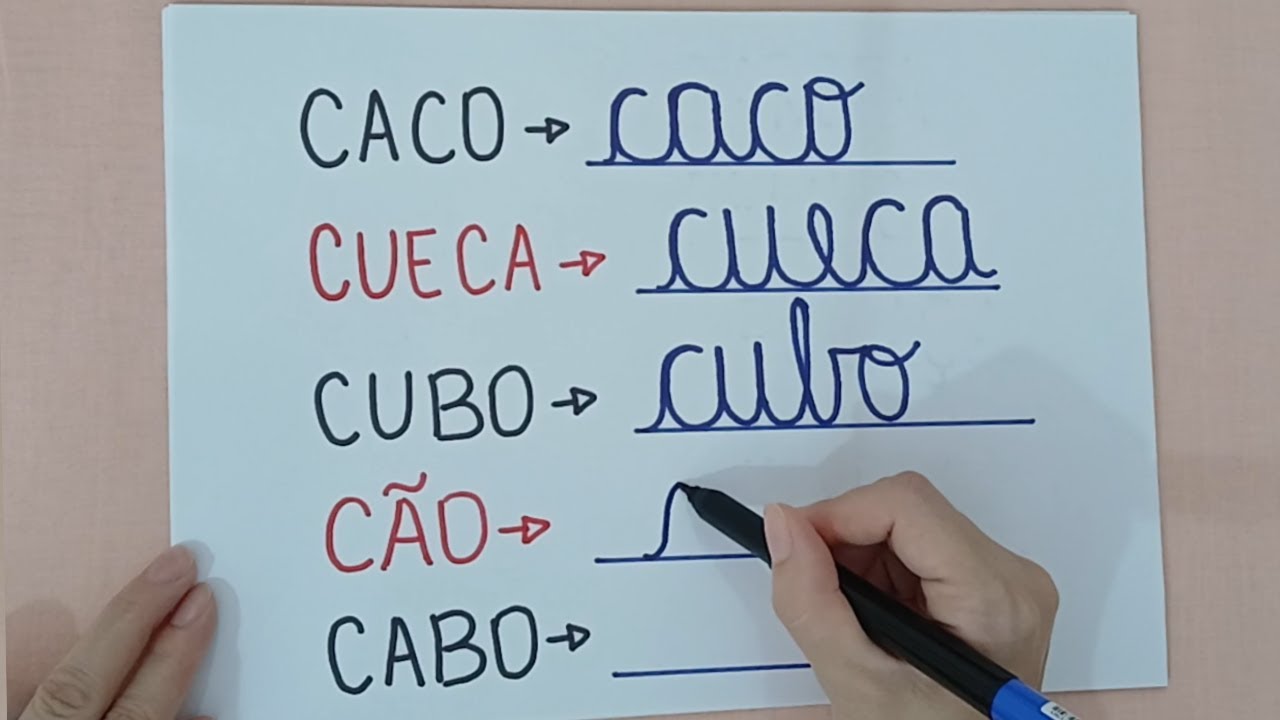 CACO → caco
CUECA → cueca
CUBO → cubo
CÃO →
CABO →